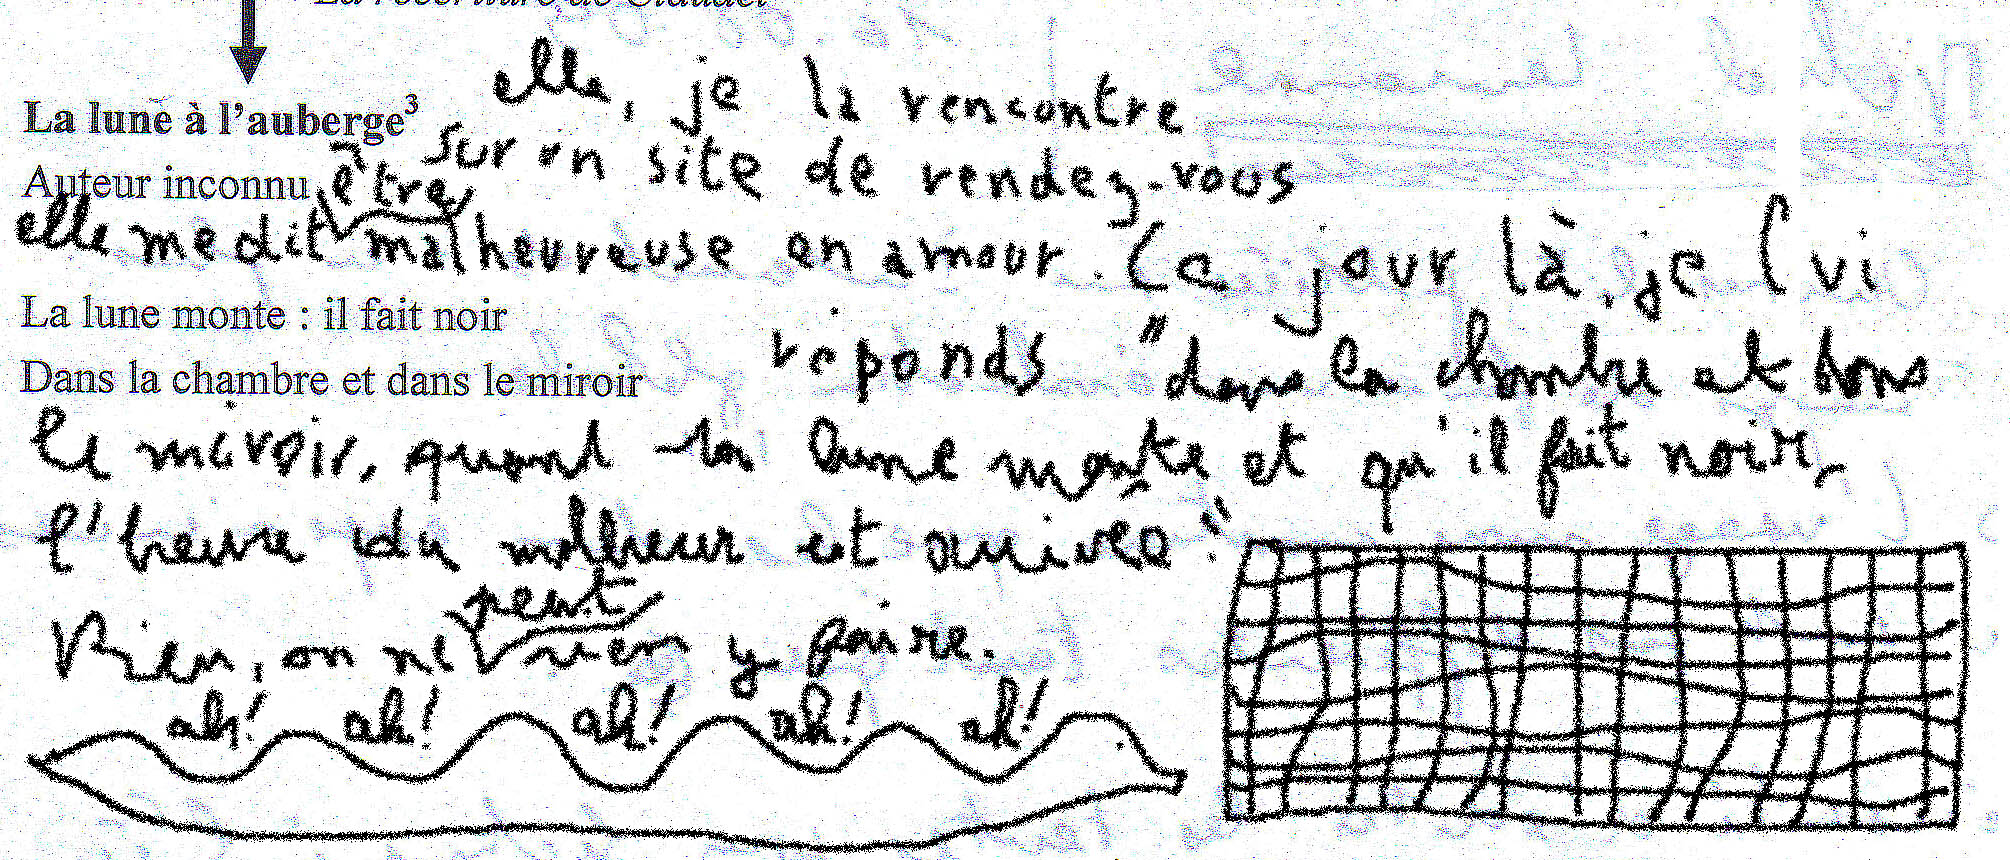 La réécriture de Claudel
elle, je la rencontre
La lune à l'auberge³
sur un site de rendez-vous
Auteur inconnu
être
elle me dit malheureuse en amour. Ce jour là, je lui
La lune monte : il fait noir
réponds "dans la chambre et dans
Dans la chambre et dans le miroir
le miroir, quand la lune monte et qu'il fait noir,
l'heure du malheur est arrivée."
peut
Rien, on ne rien y faire.
ah! ah! ah! ah! ah!